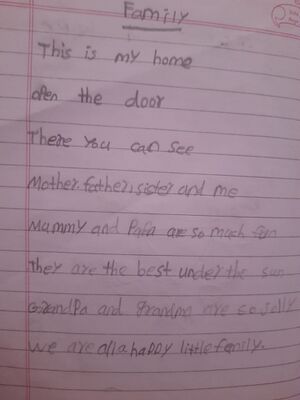 Family
This is my home
open the door
There you can see
Mother, father, sister and me
Mummy and Papa are so much fun
They are the best under the sun
Grandpa and grandma are so jolly
We are all a happy little family.